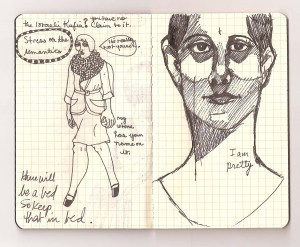 you have no
the Israeli Kufia Claim to it.
Stress on the
semantics
It's really
not yours!
my
name
has your
name on
it.
there will
be a bed
so keep
that in bed.
I am
pretty